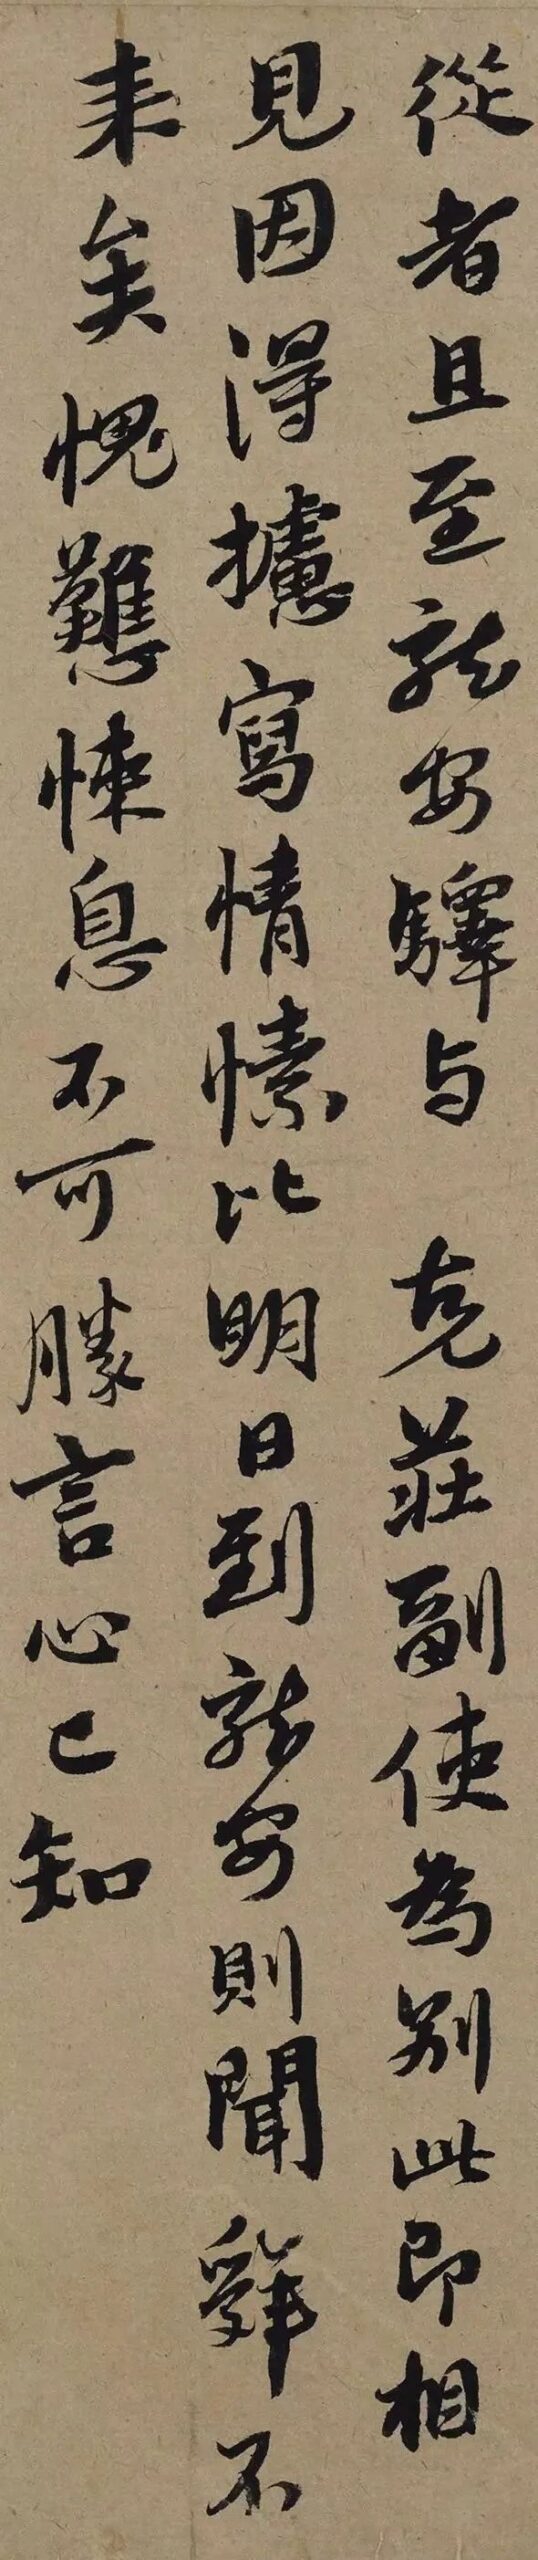 從者且至龍安驛与 克莊副使為别此即相
見因得攄寫情愫比明日到龍安則聞舜不
来矣愧戁悚息不可勝言心已知